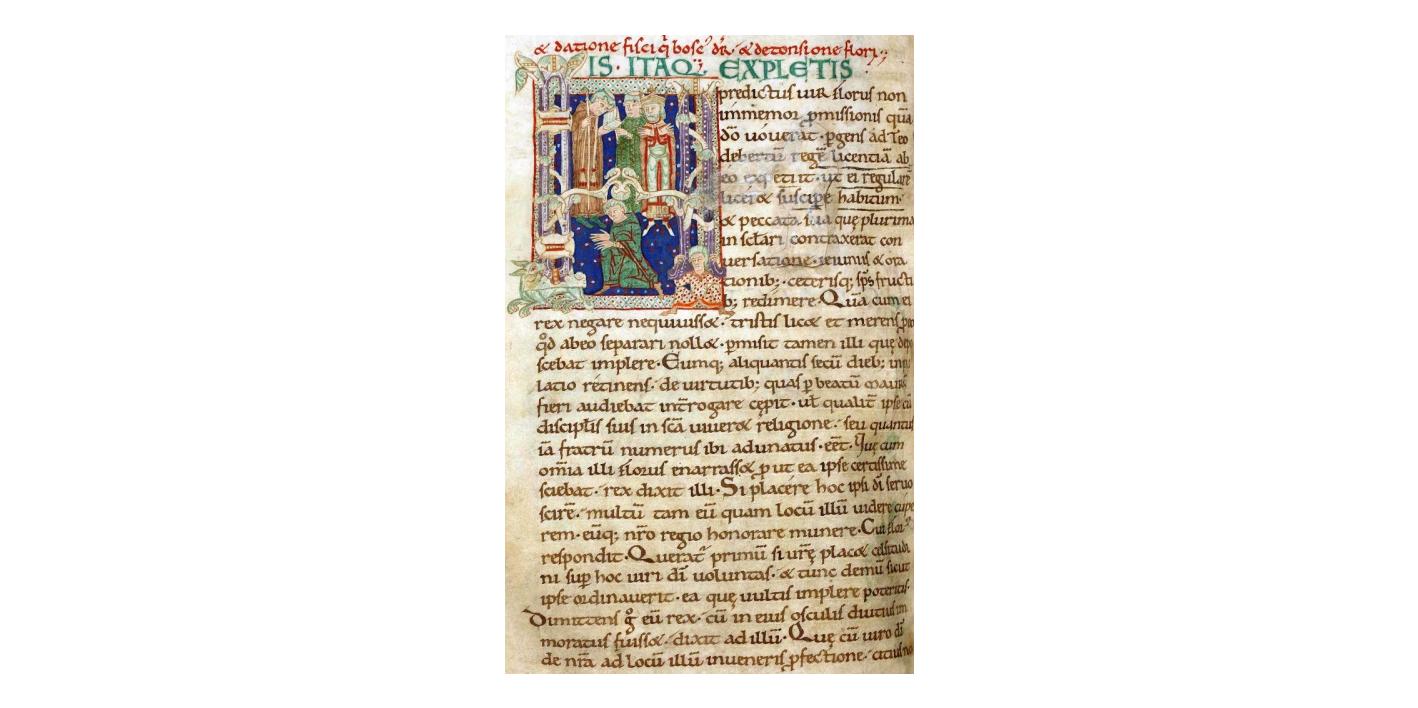 & datione fisci q̇ bosc̄ dr̄. & detonsione flori.
IS. ITAQ; EXPLETIS
predictus uir florus non
inmemor ꝓmissionis quā
dō uouerat. pgens ad Teo
debertū regē licentiā ab
eo expetiit. ut ei regularē
lic& suscipe habitum
& peccata sua quę plurima
in sc̄lari contraxerat con
uersatione. ieiuniis & ora
tionib; ceterisq; sp̄s fructi
b; redimere. Quā cum ei
rex negare nequiuiss&. tristis lic& et merens pro
qd̄ abeo separari noll&. pmisit tamen illi quę depo
scebat implere. Eumq; aliquantis secū dieb; in pa
latio retinens. de uirtutib; quas p beatū mauꝝ
fieri audiebat int̄rogare cępit. ut̄ qualit̄ ipse cū
discipt̄is suis in sc̄a uiuer& religione. seu quantus
iā fratrū numerus ibi adunatus. eēt. Quę cum
om̄ia illi florus enarrass& put ea ipse certissime
sciebat. rex dixit illi. Si placere hoc ipsi dī seruo
scirē. multū tam eū quam locū illū uidere cupe
rem. eūq; nr̄o regio honorare munere. Cui flor⁹
respondit. Querat̄ primū si ur̄ę plac& celsitudi
ni sup hoc uiri dī uoluntas. & tunc demū sicut
ipse ordinauerit. ea quę uultis implere poteritis.
Dimittens g̊ eū rex. cū in eius osculis diutius im
moratus fuiss&. dixit ad illū. Quę cū uiro dī
de nr̄a ad locū illū inueneris ꝓfectione. citius no